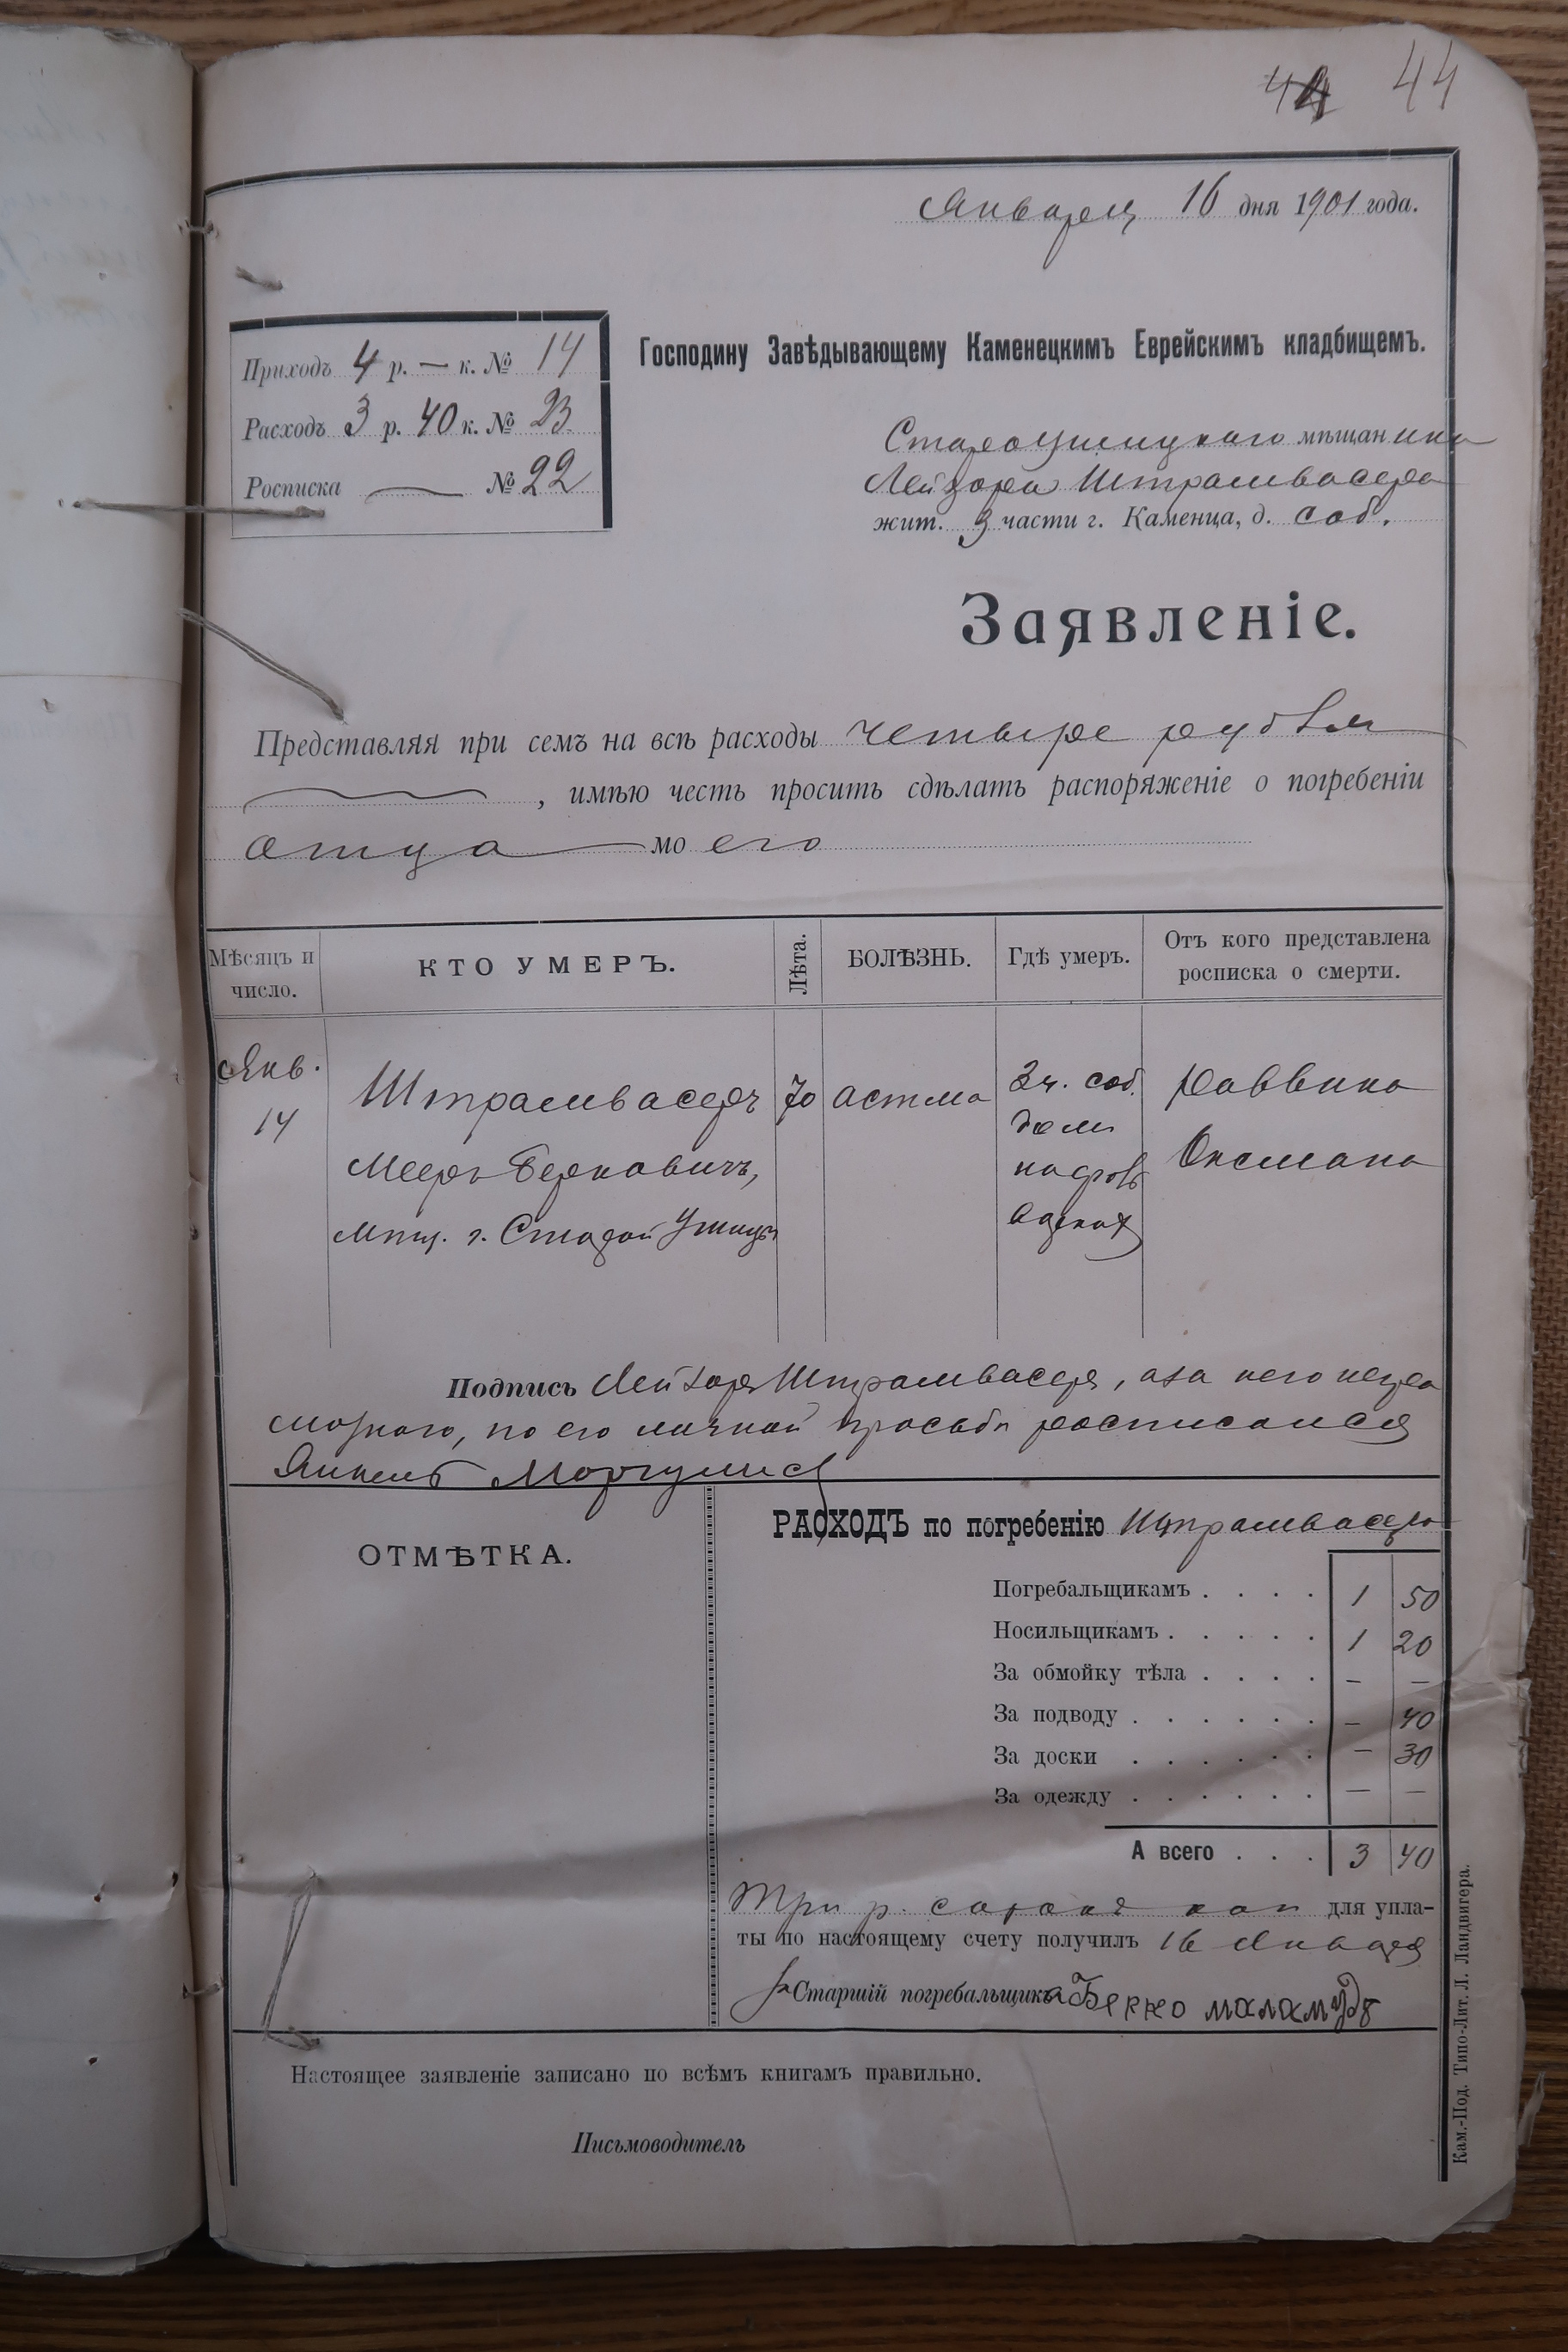 44 44
Января 16 дня 1901 года.
Приходъ 4 р. — к. № 14
Расходъ 3 р. 40 к. № 23
Росписка — № 22
Господину Завѣдывающему Каменецкимъ Еврейскимъ кладбищемъ.
Староушицкаго мѣщанина
Лейзора Штрамвасера
жит. 3 части г. Каменца, д. соб.
Заявленіе.
Представляя при семъ на всѣ расходы четыре рубля
—, имѣю честь просить сдѣлать распоряженіе о погребеніи
отца — моего
Мѣсяцъ и число.
КТО УМЕРЪ.
Лѣта.
БОЛѢЗНЬ.
Гдѣ умеръ.
Отъ кого представлена росписка о смерти.
Янв.
14
Штрамвасеръ
Мееръ Берковичъ,
мѣщ. г. Старой Ушицы
70
астма
3 ч. соб.
домъ
Раввина
Оксмана
Подпись Лейзоръ Штрамвасеръ, а за него негра
мотнаго, по его личной просьбѣ росписался
Янкель Моргулис
ОТМѢТКА.
РАСХОДЪ по погребенію Штрамвасера
Погребальщикамъ . . . . 1 50
Носильщикамъ . . . . . 1 20
За обмойку тѣла . . . . – –
За подводу . . . . . . – 40
За доски . . . . . . – 30
За одежду . . . . . . – –
А всего . . . 3 40
Три р. сорокъ коп для упла-
ты по настоящему счету получилъ 16 Января
за Старшій погребальщика Берко маламудъ
Настоящее заявленіе записано по всѣмъ книгамъ правильно.
Письмоводитель
Кам.-Под. Типо-Лит. Л. Ландвигера.